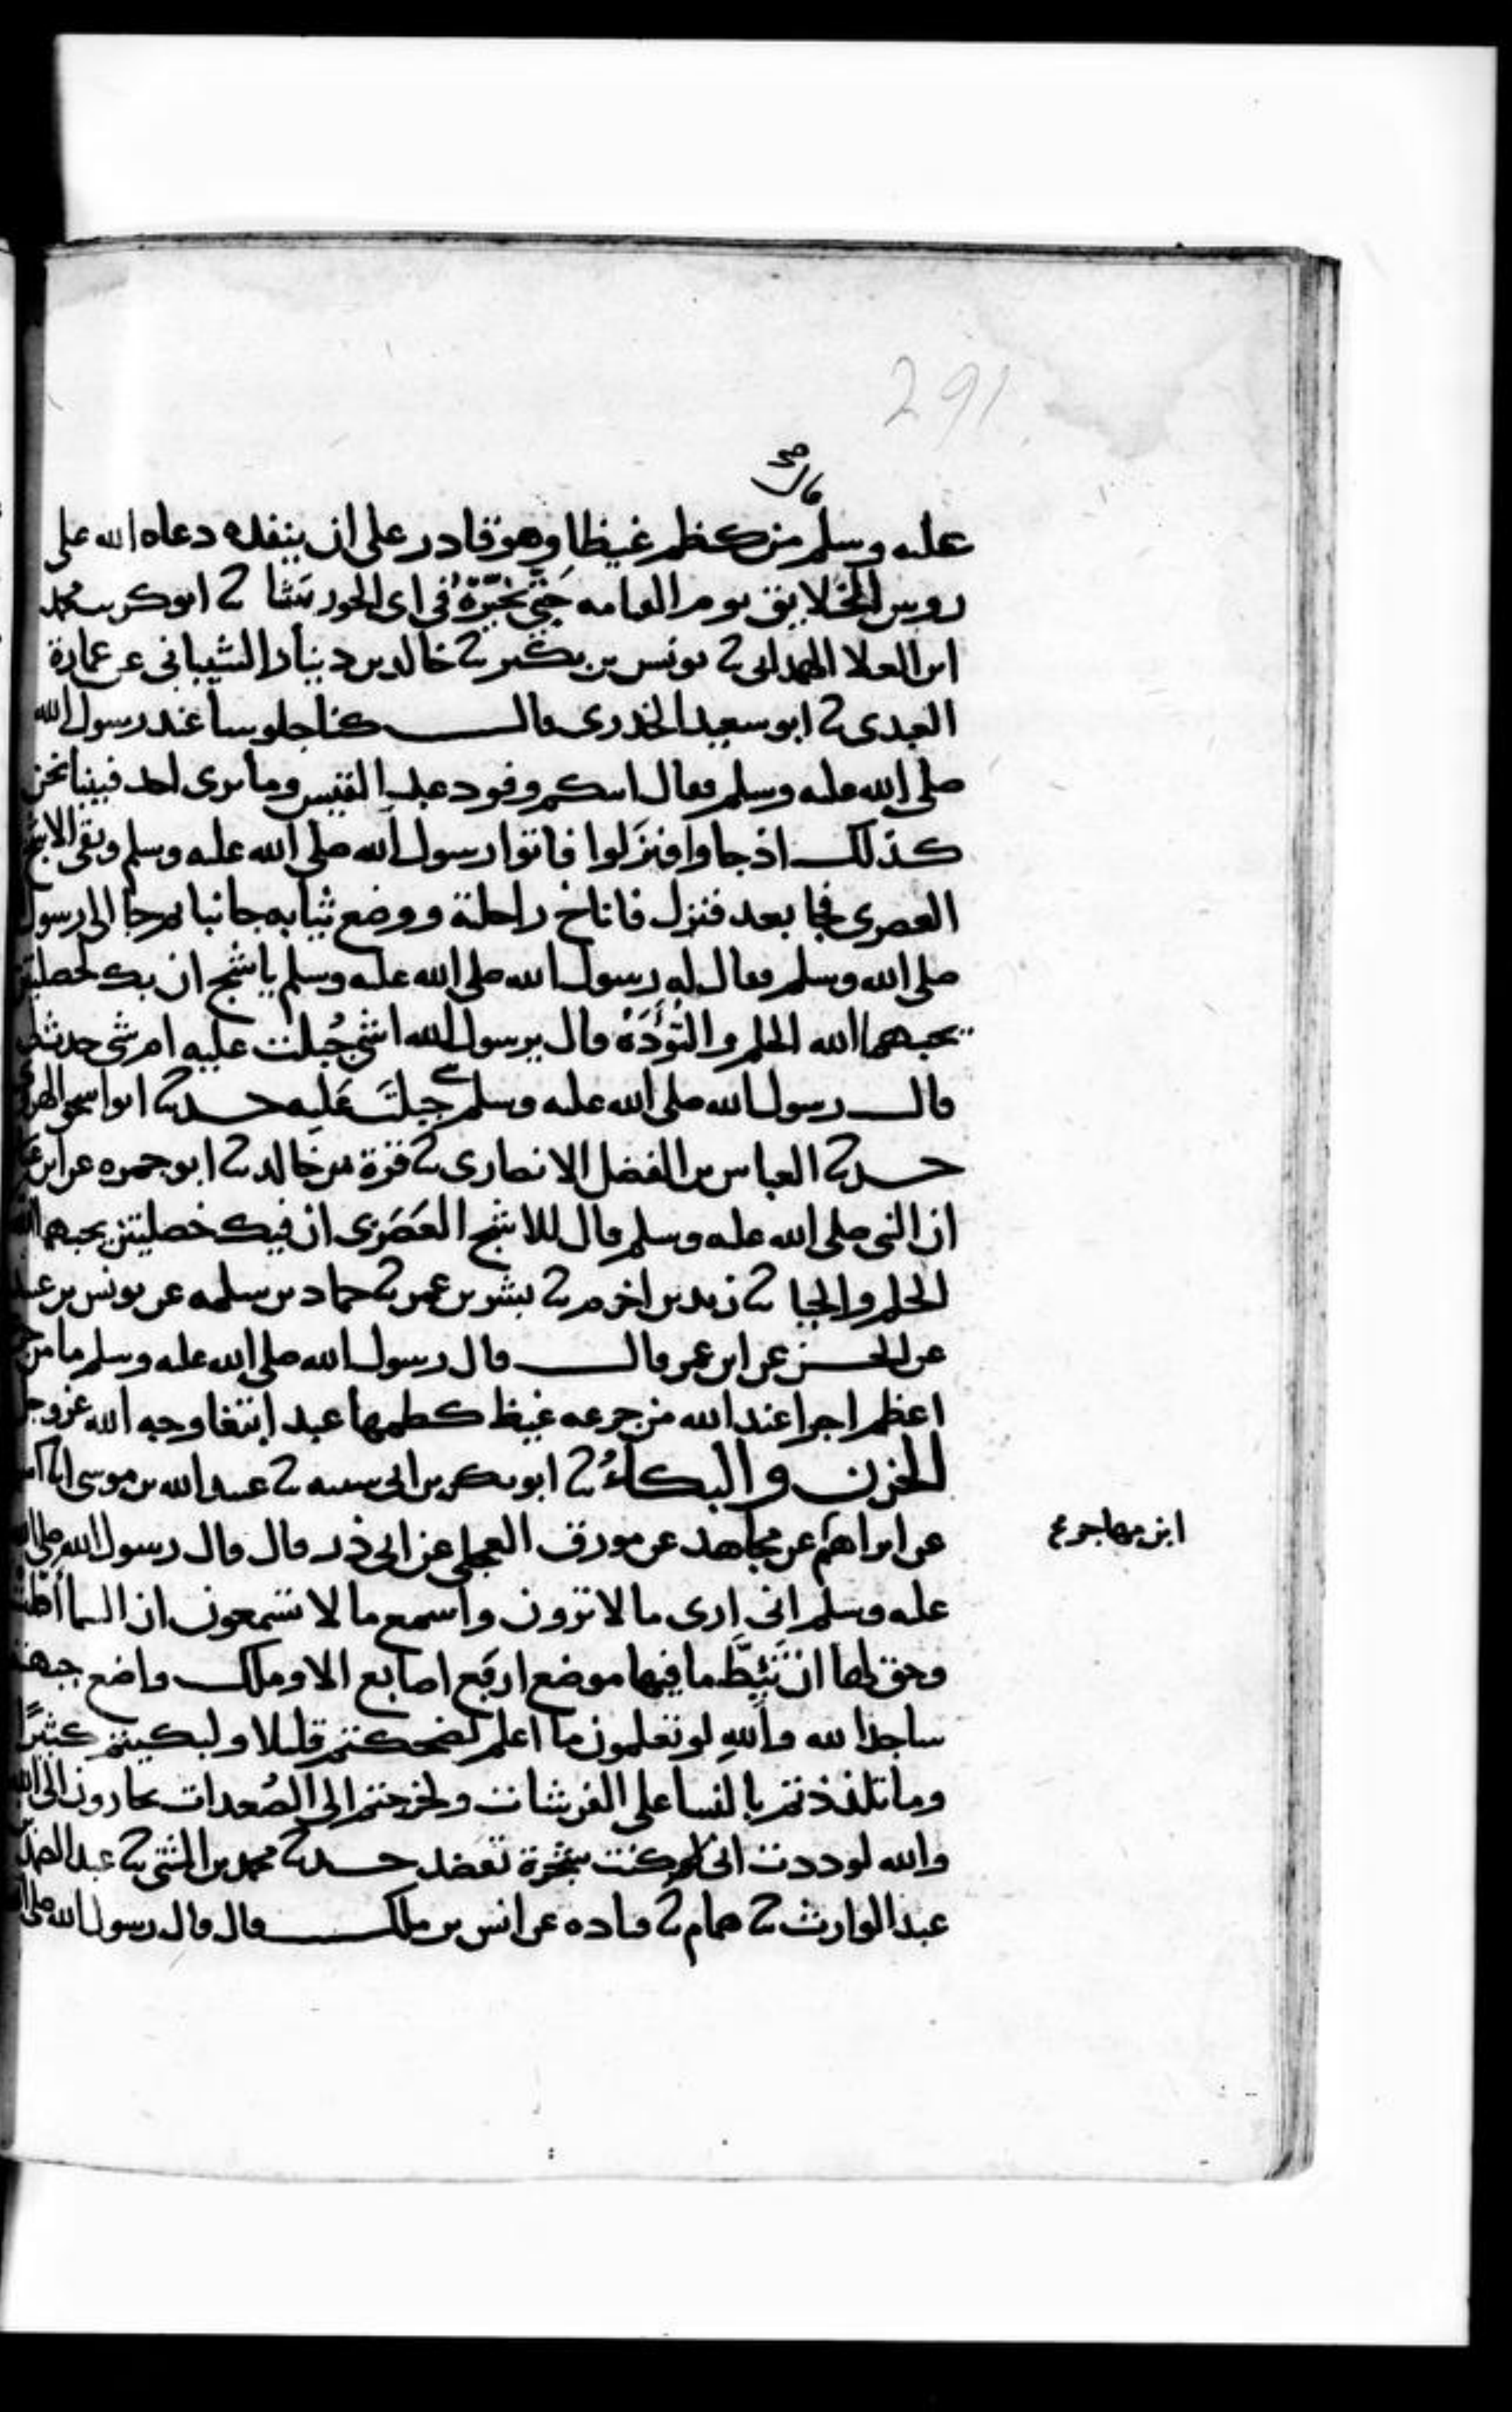 291
قال صح
عليه وسلم من كظم غيظا وهو قادر على ان ينفذه دعاه الله على
روس الخلايق يوم القيامه حَتَّى يُخَيِّرَهُ في اى الحور شا ثنا ابو كريب محمد
ابن العلا الهمدانى ثنا يونس بن بكير ثنا خالد بن دينار الشيبانى عن عمارة
العبدى ثنا ابو سعيد الخدرى قال كنا جلوسا عند رسول الله
صلى الله عليه وسلم فقال اتتكم وفود عبد القيس وما نرى احد فبينا نحن
كذلك اذ جاوا فنزَلوا فاتوا رسول الله صلى الله عليه وسلم وبقى الاشج
العصرى فجا بعد فنزل فاناخ راحلته ووضع ثيابه جانبا ثم جا الى رسول
صلى الله وسلم فقال له رسول الله صلى الله عليه وسلم ياشج ان بك لخصلتين
يحبهما الله الحلم والتُؤَدَهُ قال يرسول الله اشى جُبلت عليه ام شى حدث لى
قال رسول الله صلى الله عليه وسلم جبلتَ عَليه حدثنا ابو اسحق الهروى
حدثنا العباس بن الفضل الانصارى ثنا قرة بن خالد ثنا ابو جمره عن ابن عباس
ان النبى صلى الله عليه وسلم قال للاشج العَصَرَى ان فيك خصلتين يحبهما الله
الحلم والحيا ثنا زيد بن اخزم ثنا بشر بن عمر ثنا حماد بن سلمه عن يونس بن عبيد
عن الحسن عن ابن عمر قال قال رسول الله صلى الله عليه وسلم ما من جرعه
اعظم اجرا عند الله من جرعه غيظ كظمها عبد ابتغا وجه الله عز وجل
الحزن والبكاءُ ثنا ابو بكر بن ابى شيبه ثنا عبيد الله بن موسى انا
عن ابراهيم عن مجاهد عن مورق العجلى عن ابى ذر قال قال رسول الله صلى الله
ابن مهاجر ع
عليه وسلم انى ارى ما لا ترون واسمع ما لا تسمعون ان السما اطت
وحق لها ان تَئِطَّ ما فيها موضع اربَع اصابع الا وملك واضع جبهته
ساجدا لله واللهِ لو تعلمون ما اعلم لضحكتم قليلا ولبكيتم كثيرًا
وما تلذذتم بالنسا على الفرشات ولخرجتم الى الصُعدات تجارون الى الله
والله لوددت انى كنت شجرة تعضد حدثنا محمد بن المثنى ثنا عبد الصمد بن
عبد الوارث ثنا همام ثنا قتاده عن انس بن ملك قال قال رسول الله صلى الله